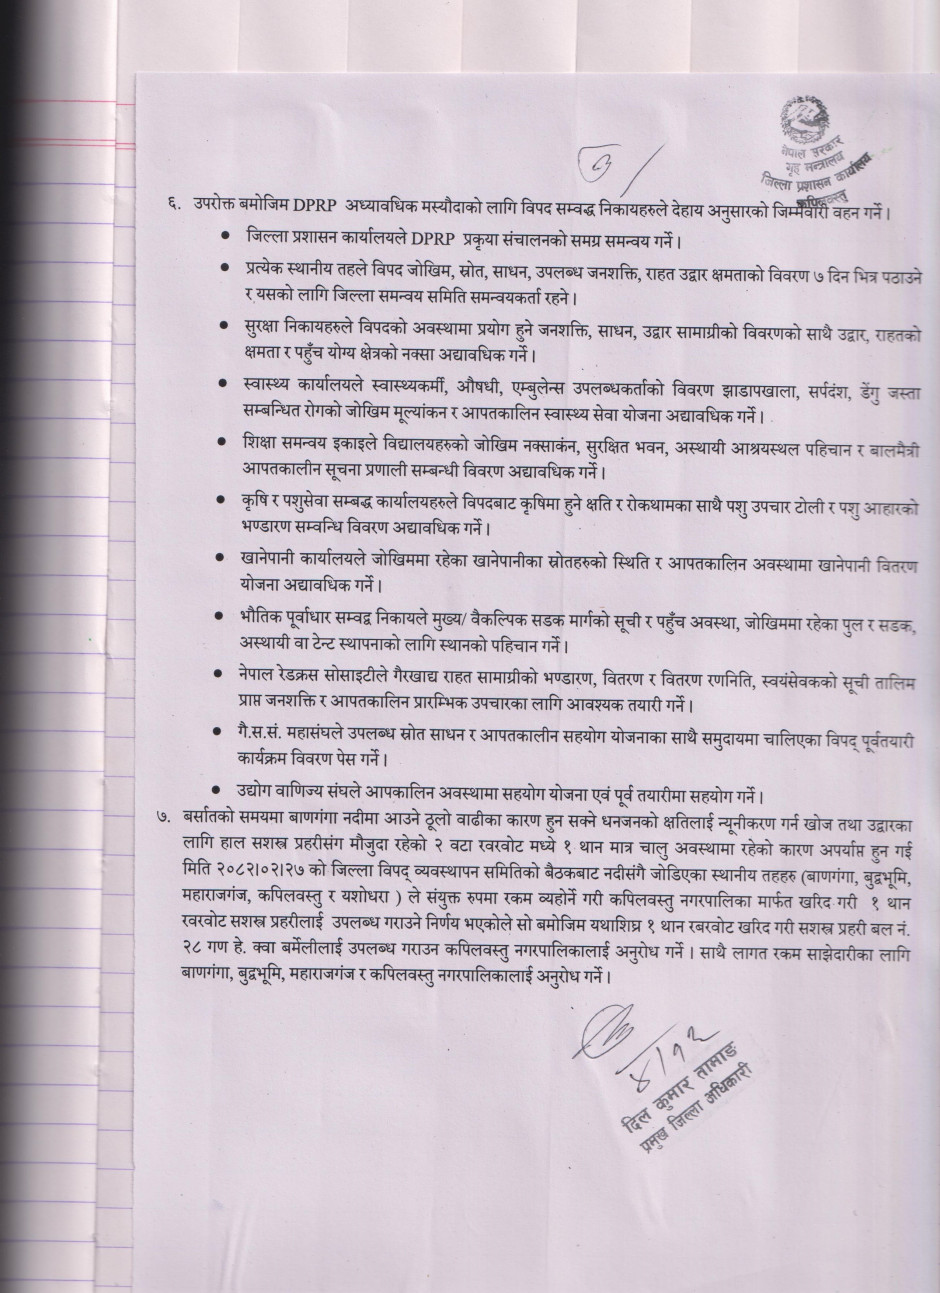 नेपाल सरकार
गृह मन्त्रालय
जिल्ला प्रशासन कार्यालय
कपिलवस्तु
६. उपरोक्त बमोजिम DPRP अध्यावधिक मस्यौदाको लागि विपद सम्वद्ध निकायहरुले देहाय अनुसारको जिम्मेवारी वहन गर्ने।
• जिल्ला प्रशासन कार्यालयले DPRP प्रकृया संचालनको समग्र समन्वय गर्ने।
• प्रत्येक स्थानीय तहले विपद जोखिम, स्रोत, साधन, उपलब्ध जनशक्ति, राहत उद्वार क्षमताको विवरण ७ दिन भित्र पठाउने
र यसको लागि जिल्ला समन्वय समिति समन्वयकर्ता रहने।
• सुरक्षा निकायहरुले विपदको अवस्थामा प्रयोग हुने जनशक्ति, साधन, उद्वार सामाग्रीको विवरणको साथै उद्वार, राहतको
क्षमता र पहुँच योग्य क्षेत्रको नक्सा अद्यावधिक गर्ने।
• स्वास्थ्य कार्यालयले स्वास्थ्यकर्मी, औषधी, एम्बुलेन्स उपलब्धकर्ताको विवरण झाडापखाला, सर्पदंश, डेंगु जस्ता
सम्बन्धित रोगको जोखिम मूल्यांकन र आपतकालिन स्वास्थ्य सेवा योजना अद्यावधिक गर्ने।
• शिक्षा समन्वय इकाइले विद्यालयहरुको जोखिम नक्साकंन, सुरक्षित भवन, अस्थायी आश्रयस्थल पहिचान र बालमैत्री
आपतकालीन सूचना प्रणाली सम्बन्धी विवरण अद्यावधिक गर्ने।
• कृषि र पशुसेवा सम्बद्ध कार्यालयहरुले विपदबाट कृषिमा हुने क्षति र रोकथामका साथै पशु उपचार टोली र पशु आहारको
भण्डारण सम्वन्धि विवरण अद्यावधिक गर्ने।
• खानेपानी कार्यालयले जोखिममा रहेका खानेपानीका स्रोतहरुको स्थिति र आपतकालिन अवस्थामा खानेपानी वितरण
योजना अद्यावधिक गर्ने।
• भौतिक पूर्वाधार सम्वद्व निकायले मुख्य/ वैकल्पिक सडक मार्गको सूची र पहुँच अवस्था, जोखिममा रहेका पुल र सडक,
अस्थायी वा टेन्ट स्थापनाको लागि स्थानको पहिचान गर्ने।
• नेपाल रेडक्रस सोसाइटीले गैरखाद्य राहत सामाग्रीको भण्डारण, वितरण र वितरण रणनिति, स्वयंसेवकको सूची तालिम
प्राप्त जनशक्ति र आपतकालिन प्रारम्भिक उपचारका लागि आवश्यक तयारी गर्ने।
• गै.स.सं. महासंघले उपलब्ध स्रोत साधन र आपतकालीन सहयोग योजनाका साथै समुदायमा चालिएका विपद् पूर्वतयारी
कार्यक्रम विवरण पेस गर्ने।
• उद्योग वाणिज्य संघले आपकालिन अवस्थामा सहयोग योजना एवं पूर्व तयारीमा सहयोग गर्ने।
७. बर्सातको समयमा बाणगंगा नदीमा आउने ठूलो वाढीका कारण हुन सक्ने धनजनको क्षतिलाई न्यूनीकरण गर्न खोज तथा उद्वारका
लागि हाल सशस्त्र प्रहरीसंग मौजुदा रहेको २ वटा रवरवोट मध्ये १ थान मात्र चालु अवस्थामा रहेको कारण अपर्याप्त हुन गई
मिति २०८२।०२।२७ को जिल्ला विपद् व्यवस्थापन समितिको बैठकबाट नदीसंगै जोडिएका स्थानीय तहहरु (बाणगंगा, बुद्वभूमि,
महाराजगंज, कपिलवस्तु र यशोधरा ) ले संयुक्त रुपमा रकम व्यहोर्ने गरी कपिलवस्तु नगरपालिका मार्फत खरिद गरी १ थान
रवरवोट सशस्त्र प्रहरीलाई उपलब्ध गराउने निर्णय भएकोले सो बमोजिम यथाशिघ्र १ थान रबरवोट खरिद गरी सशस्त्र प्रहरी बल नं.
२८ गण हे. क्वा बर्मेलीलाई उपलब्ध गराउन कपिलवस्तु नगरपालिकालाई अनुरोध गर्ने। साथै लागत रकम साझेदारीका लागि
बाणगंगा, बुद्वभूमि, महाराजगंज र कपिलवस्तु नगरपालिकालाई अनुरोध गर्ने।
४/१२
दिल कुमार तामाङ
प्रमुख जिल्ला अधिकारी